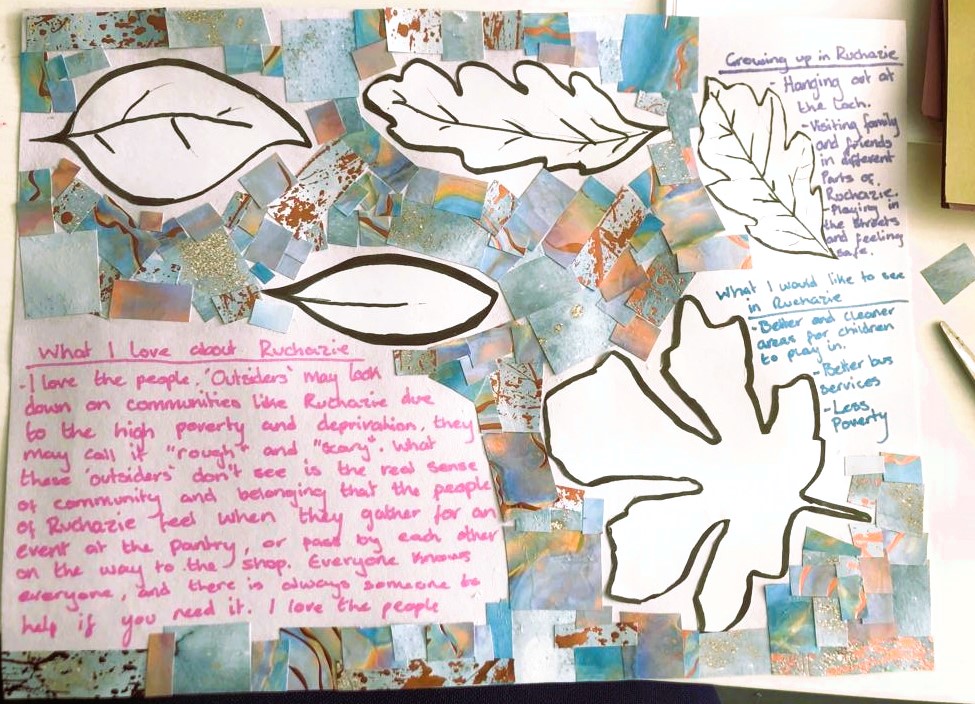 Growing up in Ruchazie
- Hanging out at
the Loch.
- Visiting family
and friends
in different
Parts of
Ruchazie.
- Playing in
the streets
and feeling
safe.
What I would like to see
in Ruchazie
- Better and cleaner
areas for children
to play in.
- Better bus
services
- Less
Poverty
What I love about Ruchazie
- I love the people. 'Outsiders' may look
down on communities like Ruchazie due
to the high poverty and deprivation, they
may call it "rough" and "scary". What
these 'outsiders' don't see is the real sense
of community and belonging that the people
of Ruchazie feel when they gather for an
event at the pantry, or pass by each other
on the way to the shop. Everyone knows
everyone, and there is always someone to
help if you need it. I love the people